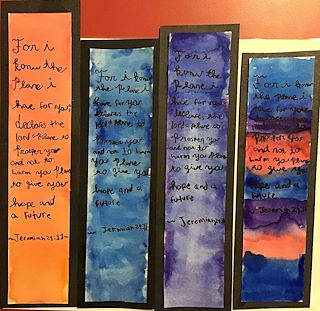 For i
know the
Plans i
have for you
declares the
lord Plans to
Prosper you
and not to
harm you Plans
to give you
hope and
a future
~Jeremiah 29:11~
For i know
the plans i
have for you
declares the
lord Plans to
Prosper you
and not to harm
you Plans
to give you
hope and a
future
~ Jeremiah 29:11
For i know
the Plans i
have for you
declares the
lord Plans to
Prosper you
and not to
harm you Plans
to give you
hope and a
future
~ Jeremiah 29:11
For i know
the plans i
have for you
declares the
Prosper you
and not to
harm you Plans
to give you
hope and a
future
~ Jeremiah 29:11